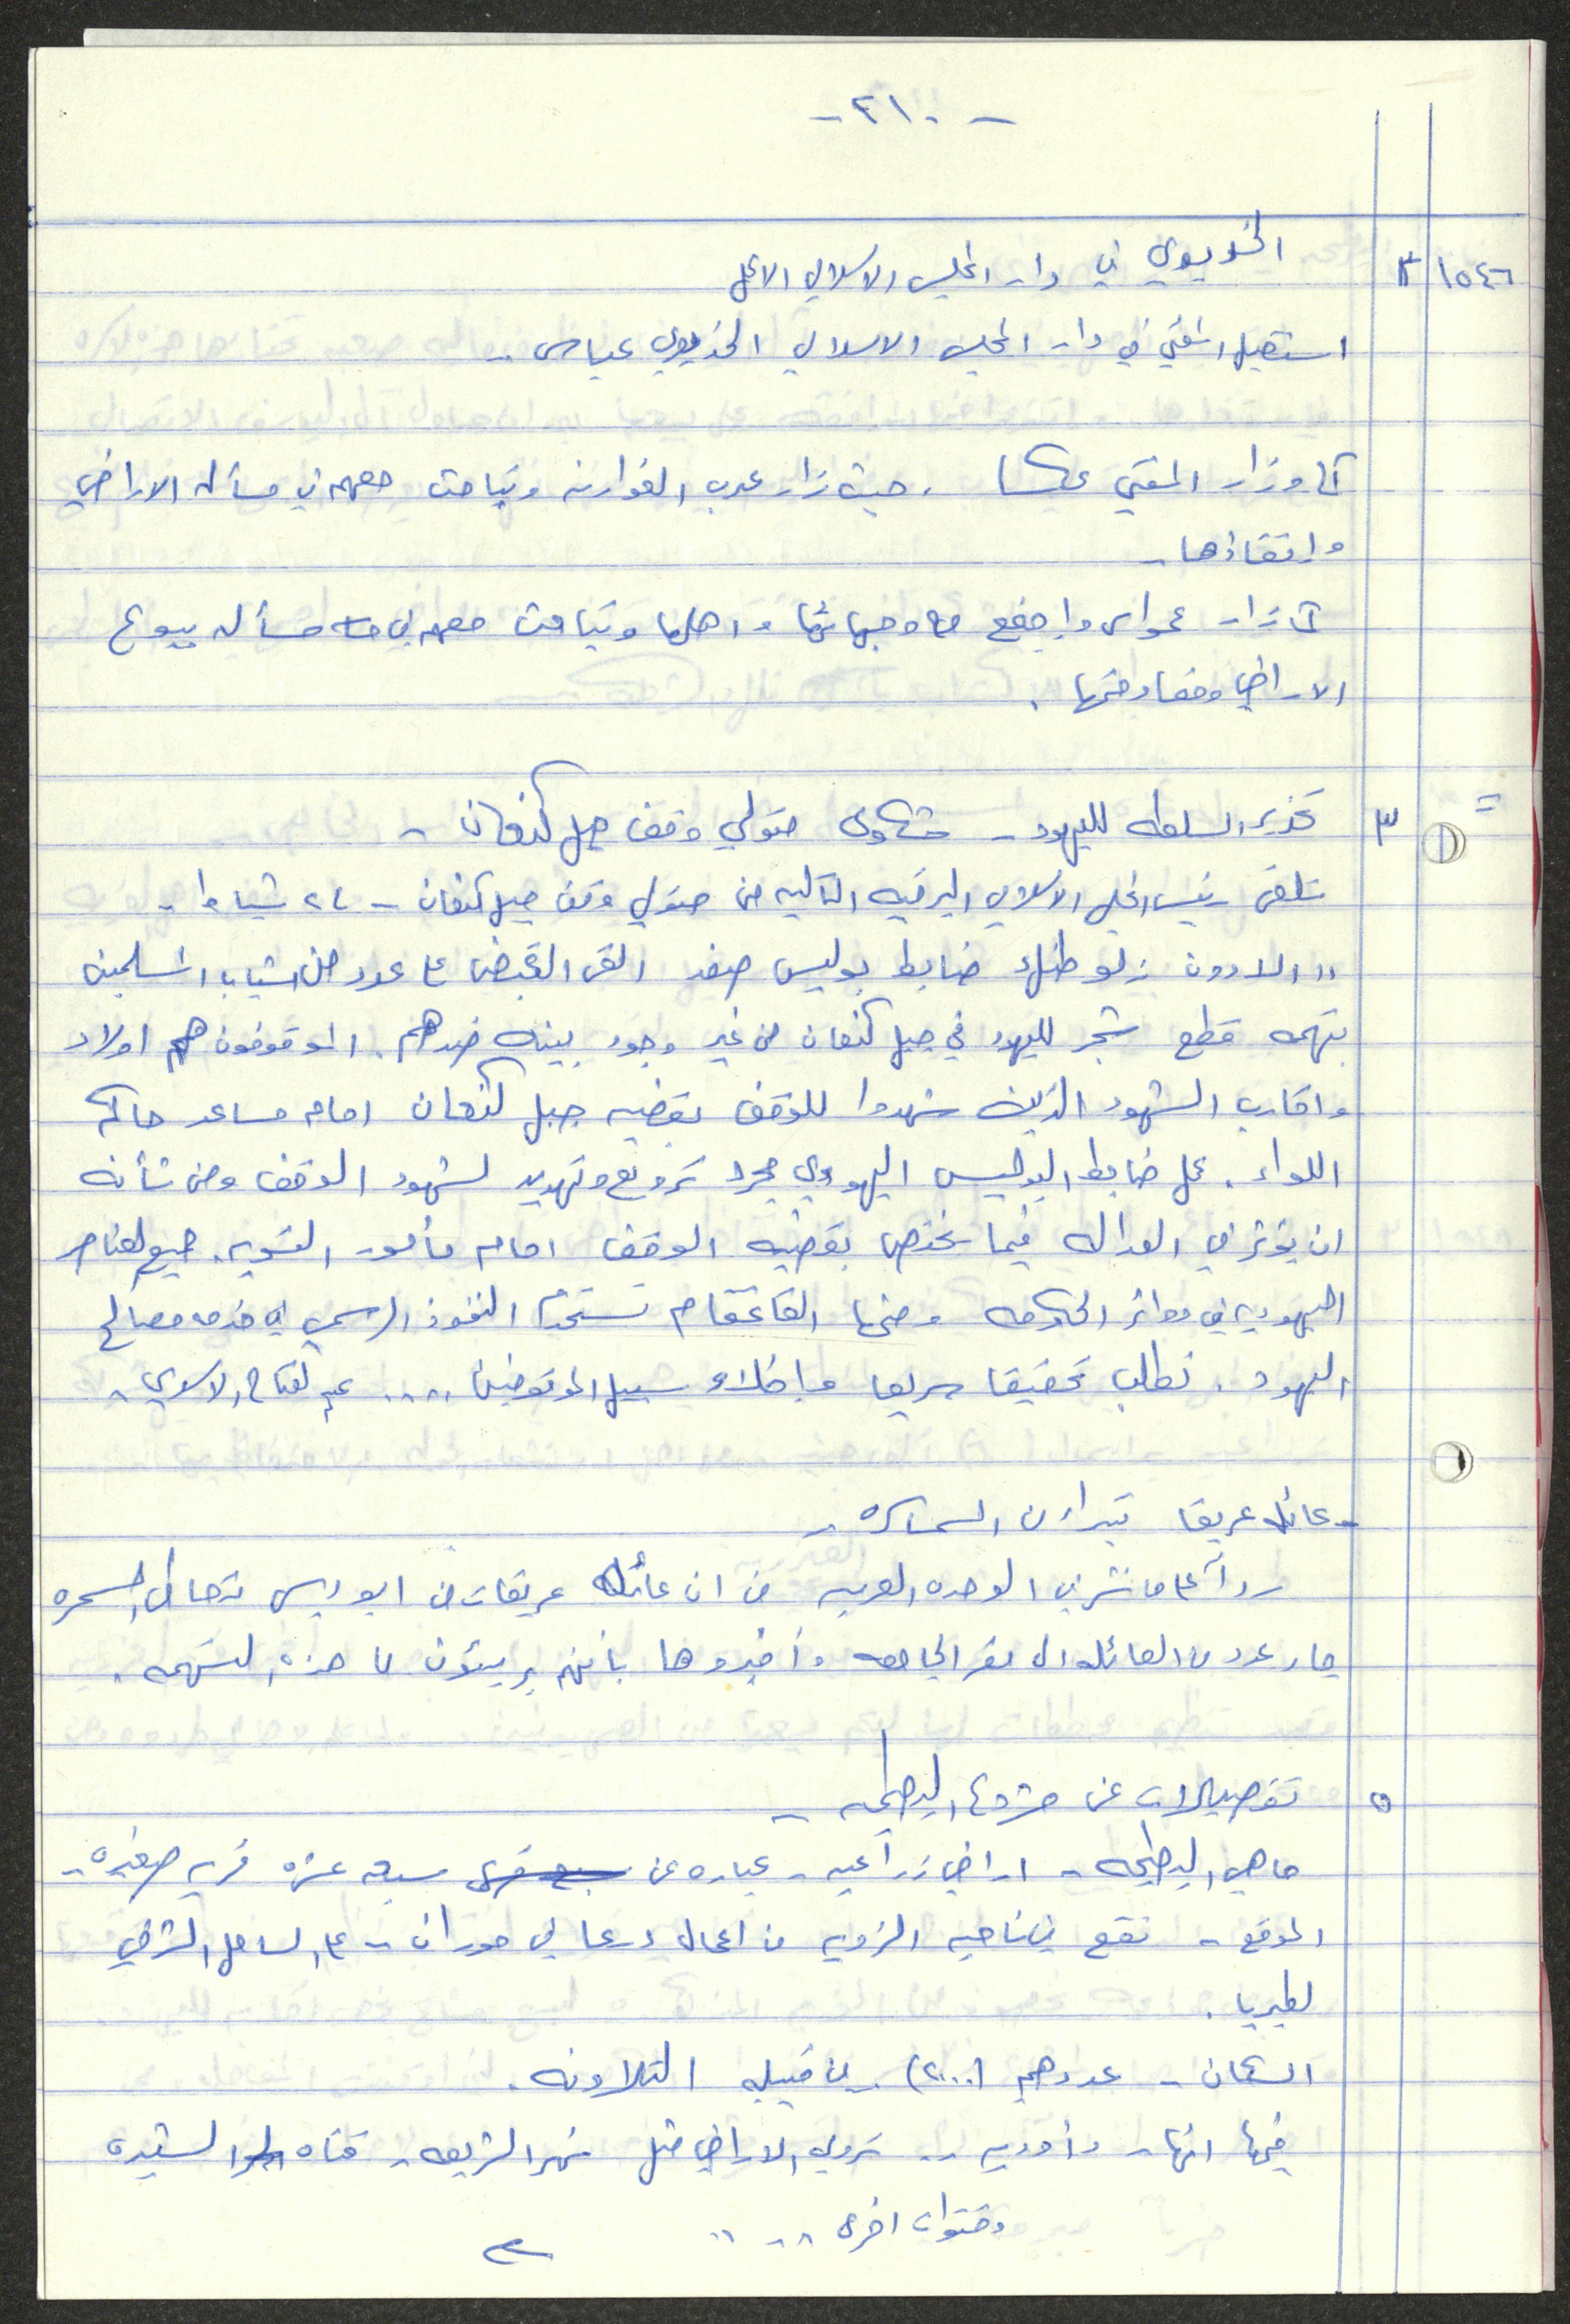 - ٢١٠ -
١٥٤٦ ٣ الخديوي في دار المجلس الاسلامي الاعلى
استقبل المفتي في دار المجلس الاسلامي الخديوي عباس -
كما وزار المفتي عكا . حيث زار عرب الغوارنه وتباحث معهم في مسأله الاراضي
وانقاذها -
كما زار عمواس واجتمع مع وجهائها واهلها وتباحث معهم في مسأله بيوع
الاراضي ومفاوضتها .
= ٣ تحذير السلطه لليهود - شكوى متولي وقف جبل كنعان -
تلقى رئيس المجلس الاسلامي البرقيه التاليه من متولي وقف جبل كنعان - ٢٤ شباط -
" اللادون زلو ضابط بوليس صفد القى القبض على عدد من الشباب المسلمين
بتهمه قطع شجر لليهود في جبل كنعان من غير وجود بينه ضدهم . الموقوفون هم اولاد
واقارب الشهود الذين شهدوا للوقف بقضيه جبل كنعان امام مساعد حاكم
اللواء . عمل ضابط البوليس اليهودي مجرد ترويع وتهديد لشهود الوقف ومن شأنه
ان يؤثر في العداله فيما يختص بقضيه الوقف امام مأمور التسويه . جميع العناصر
اليهوديه في دوائر الحكومه ومنها القائمقام تستخدم النفوذ الرسمي في خدمه مصالح
اليهود . نطلب تحقيقا سريعا واخلاء سبيل الموقوفين .... عبد الفتاح الاسدي -
- عائله عريقات تبرأ من السماسره -
رداً على ما نشر في الوحده العربيه من ان عائله عريقات من ابو ديس تتعاطى السمسره
جاء عدد من العائله الى مقر الجامعه وأخبروها بأنهم بريئون من هذه التهمه .
٥ تفصيلات عن مشروع البطيحه -
ما هي البطيحه - اراضي زراعيه - عباره عن سبعه عشره قريه صغيره -
الموقع - تقع في ناحيه الزويه من اعمال درعا في حوران - على الساحل الشرقي
لطبريا .
السكان - عددهم (٢٠٠٠) من قبيله التلاويه .
فيها انهار وأوديه .. تروي الاراضي مثل نهر الشريعه - قناه السنيره
وقنوات اخرى .. "